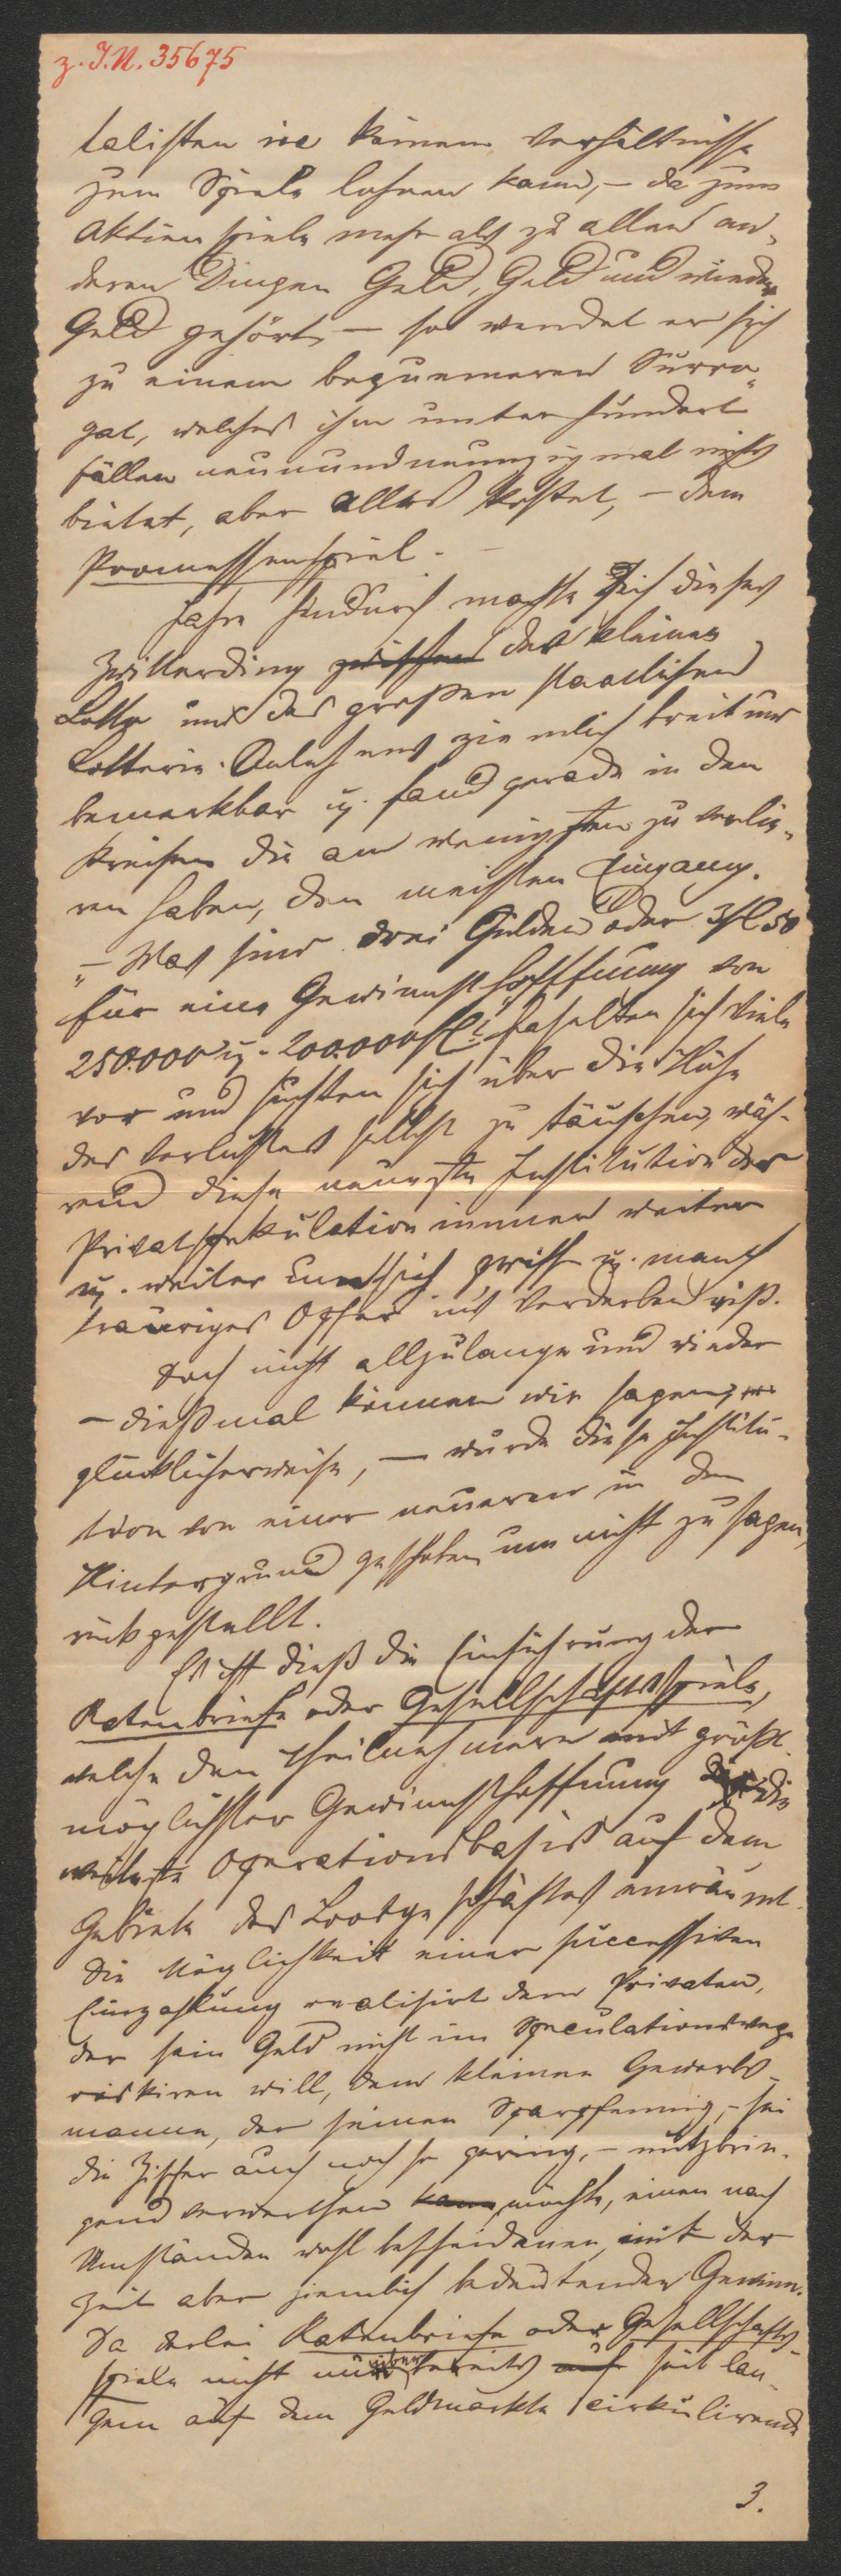 z. I.N. 35675
talisten in keinem Verhältnisse
zum Spiele lohnen kann, – da zum
Aktienspiele mehr als zu allen an-
deren Dingen Geld, Geld und wieder
Geld gehört, – so wendet er sich
zu einem bequemeren Surro-
gat, welches ihm unter hundert
Fällen neunundneunzigmal nichts
bietet, aber alles kostet, – dem
Promessenspiel. –
Jahre hindurch machte sich dieses
Zwitterding zwischen des kleinen
Lotto und der großen staatlichen
Lotterie-Anlehens ziemlich breit und
bemerkbar u. fand gerade in den
Kreisen die am wenigsten zu verlie-
ren haben, den meisten Eingang.
„– Was sind drei Gulden oder 3 fl 50
für eine Gewinnsthoffnung von
250.000 u. 200.000 fl?“ faselten sich Viele
vor und suchten sich über die Höhe
des Verlustes selbst zu täuschen, wäh-
rend diese neueste Institution der
Privatspekulation immer weiter
u. weiter um sich griff u. manch
trauriges Opfer in's Verderben riß.
Doch nicht allzulange und wieder
– dießmal können wir sagen,
glücklicherweise, – wurde diese Institu-
tion von einer neueren in den
Hintergrund geschoben um nicht zu sagen,
rückgestellt.
Es ist dieß die Einführung der
Ratenbriefe oder Gesellschaftsspiele,
welche den Theilnehmern mit größt-
möglichster Gewinnsthoffnung die
weiteste Operationsbasis auf dem
Gebiete des Loosgeschäftes einräumt.
Die Möglichkeit einer successiven
Einzahlung realisirt dem Privaten,
der sein Geld nicht im Speculationswege
riskiren will, dem kleinen Gewerbs-
manne, der seinen Sparpfennig, – sei
die Ziffer auch noch so gering, – nutzbrin-
gend verwerthen kann möchte, einen nach
Umständen wohl bescheidenen, mit der
Zeit aber ziemlich bedeutenden Gewinn.
Da derlei Ratenbriefe oder Gesellschafts-
spiele nicht nur über bereits auf seit lan-
gem auf dem Geldmarkte cirkulirende
3.